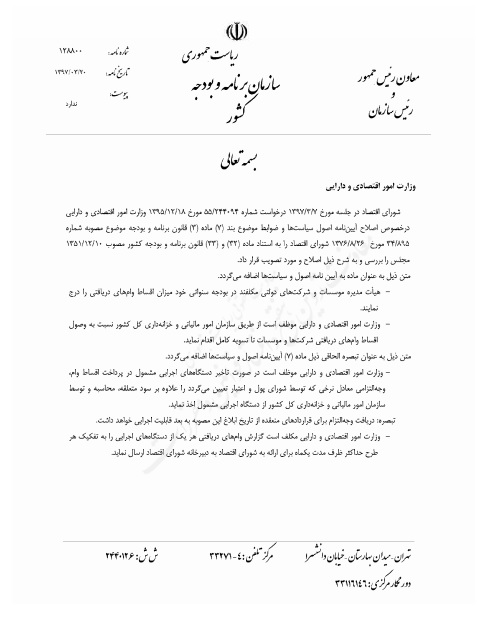 ریاست جمهوری
سازمان برنامه و بودجه
کشور
معاون رئیس جمهور
و
رئیس سازمان
شماره نامه: ۱۲۸۸۰۰
تاریخ نامه: ۱۳۹۷/۰۳/۲۰
پیوست:
ندارد
بسمه تعالی
وزارت امور اقتصادی و دارایی
شورای اقتصاد در جلسه مورخ ۱۳۹۷/۳/۷ درخواست شماره ۵۵/۲۴۴۰۹۴ مورخ ۱۳۹۵/۱۲/۱۸ وزارت امور اقتصادی و دارایی
درخصوص اصلاح آیین‌نامه اصول سیاست‌ها و ضوابط موضوع بند (۷) ماده (۳) قانون برنامه و بودجه موضوع مصوبه شماره
۳۴/۸۹۵ مورخ ۱۳۷۶/۸/۲۶ شورای اقتصاد را به استناد ماده (۳۲) و (۳۳) قانون برنامه و بودجه کشور مصوب ۱۳۵۱/۱۲/۱۰
مجلس را بررسی و به شرح ذیل اصلاح و مورد تصویب قرار داد.
متن ذیل به عنوان ماده به آیین نامه اصول و سیاست‌ها اضافه می‌گردد.
- هیأت مدیره موسسات و شرکت‌های دولتی مکلفند در بودجه سنواتی خود میزان اقساط وام‌های دریافتی را درج
نمایند.
- وزارت امور اقتصادی و دارایی موظف است از طریق سازمان امور مالیاتی و خزانه‌داری کل کشور نسبت به وصول
اقساط وام‌های دریافتی شرکت‌ها و موسسات تا تسویه کامل اقدام نماید.
متن ذیل به عنوان تبصره الحاقی ذیل ماده (۷) آیین‌نامه اصول و سیاست‌ها اضافه می‌گردد.
- وزارت امور اقتصادی و دارایی موظف است در صورت تاخیر دستگاه‌های اجرایی مشمول در پرداخت اقساط وام،
وجه‌التزامی معادل نرخی که توسط شورای پول و اعتبار تعیین می‌گردد را علاوه بر سود متعلقه، محاسبه و توسط
سازمان امور مالیاتی و خزانه‌داری کل کشور از دستگاه اجرایی مشمول اخذ نماید.
تبصره: دریافت وجه‌التزام برای قراردادهای منعقده از تاریخ ابلاغ این مصوبه به بعد قابلیت اجرایی خواهد داشت.
- وزارت امور اقتصادی و دارایی مکلف است گزارش وام‌های دریافتی هر یک از دستگاه‌های اجرایی را به تفکیک هر
طرح حداکثر ظرف مدت یکماه برای ارائه به شورای اقتصاد به دبیرخانه شورای اقتصاد ارسال نماید.
تهران-میدان بهارستان-خیابان دانشسرا مرکز تلفن: ۴-۳۳۲۷۱ ش ش: ۲۴۴۰۱۲۶
دورنگار مرکزی: ۳۳۱۱۶۱۴۶